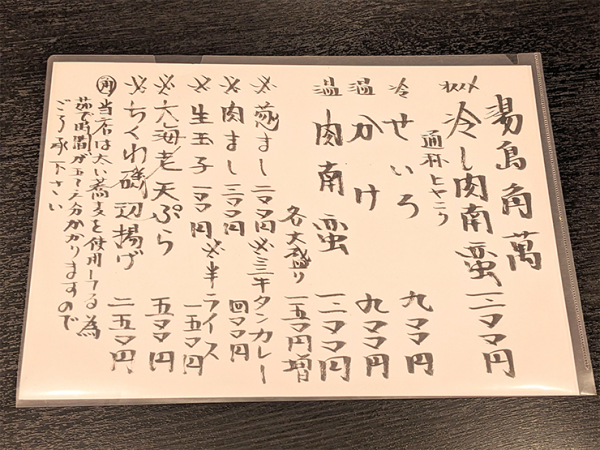 湯島角萬
冷し肉南蛮 一二〇〇円
通称ヒヤニク
冷 せいろ 九〇〇円
温 かけ 九〇〇円
温 肉南蛮 一二〇〇円
各大盛り 一五〇円増
※葱まし 二〇〇円
※ミニ牛タンカレー
※肉まし 三〇〇円
四〇〇円
※生玉子 一〇〇円
※半ライス
一五〇円
※大海老天ぷら 五〇〇円
※ちくわ磯辺揚げ 二五〇円
当店は太い蕎麦を使用してる為
茹で時間が 分かかりますので
ご了承下さい